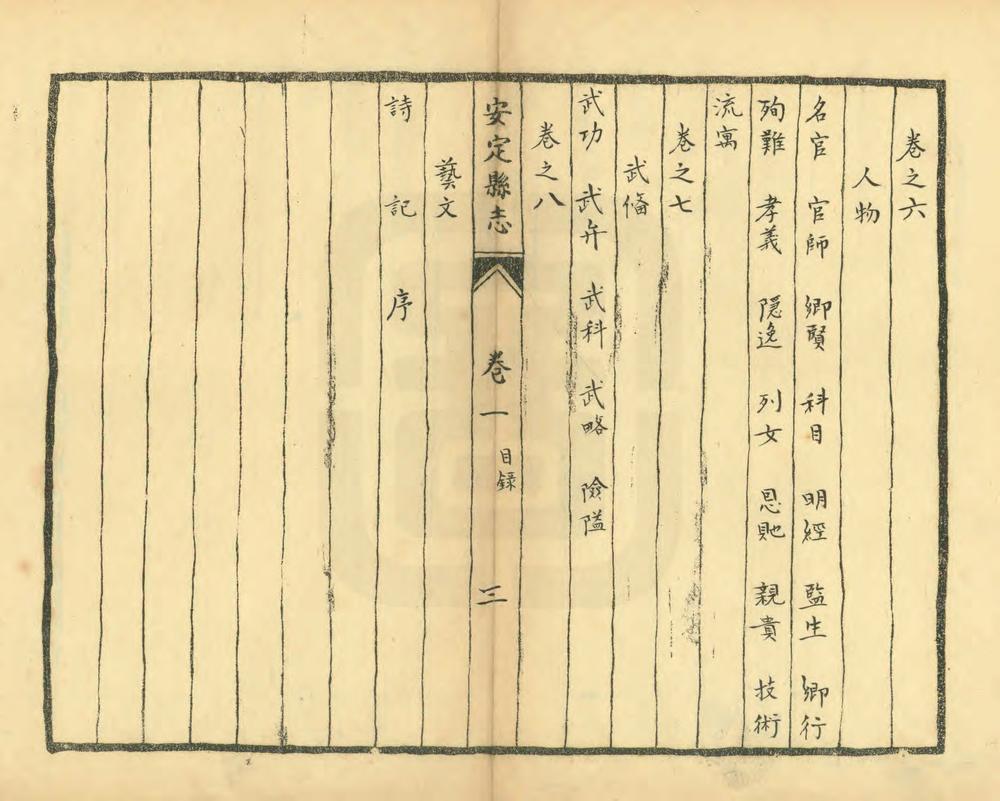 卷之六
人物
名宦 官師 鄉賢 科目 明經 監生 鄉行
殉難 孝義 隱逸 列女 恩貤 親貴 技術
流寓
卷之七
武俻
武功 武弁 武科 武略 險隘
卷之八
安定縣志 卷一 目録 三
藝文
詩 記 序